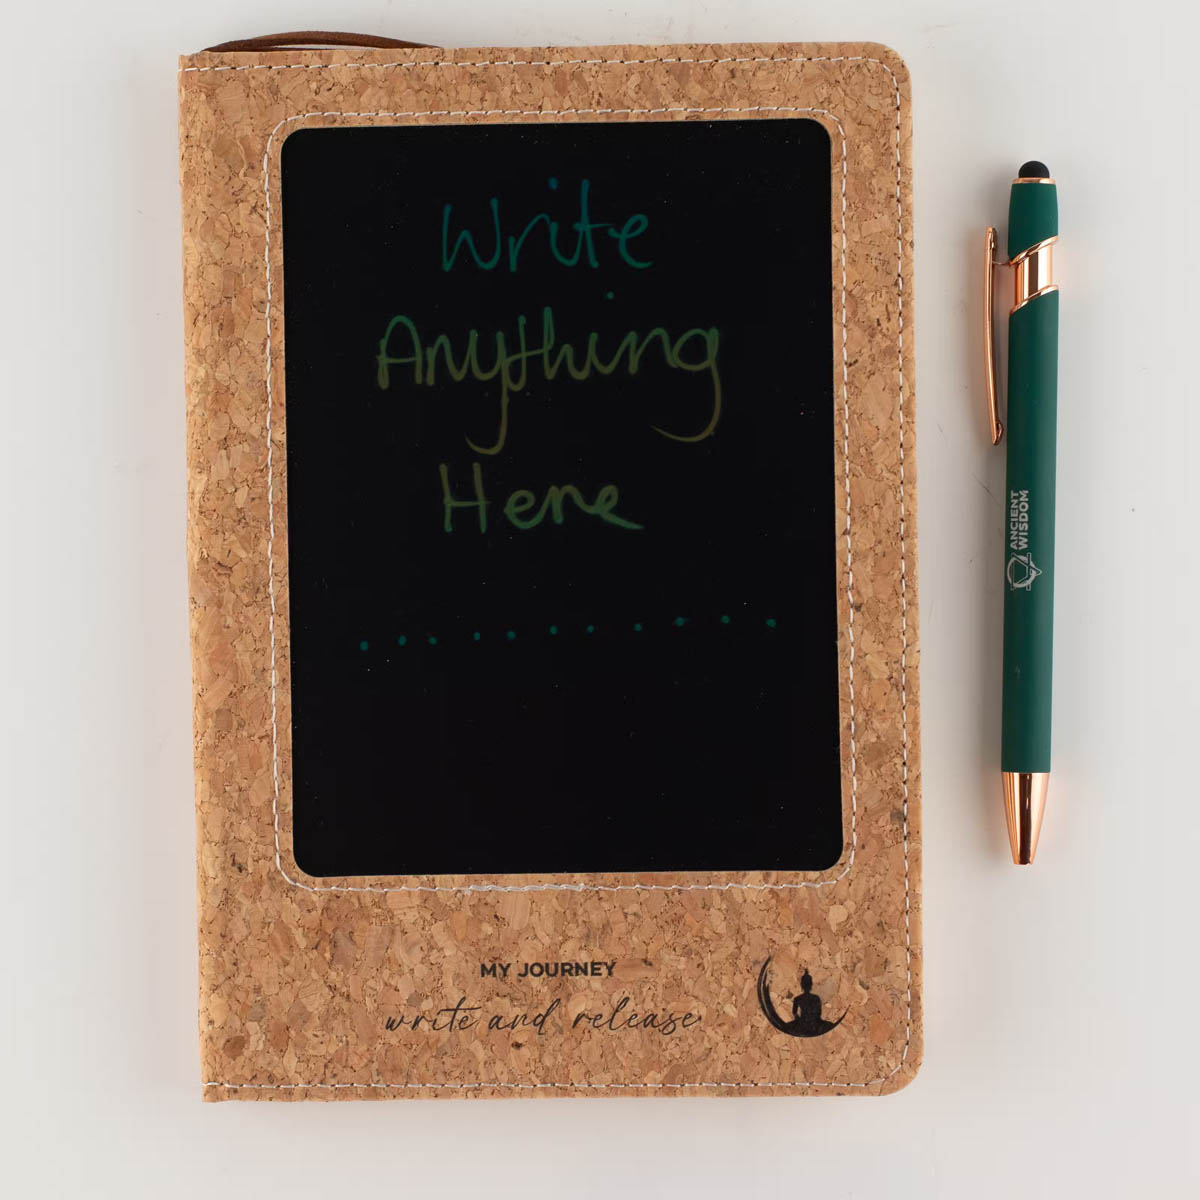 Write
Anything
Here
............
MY JOURNEY
write and release
ANCIENT
WISDOM